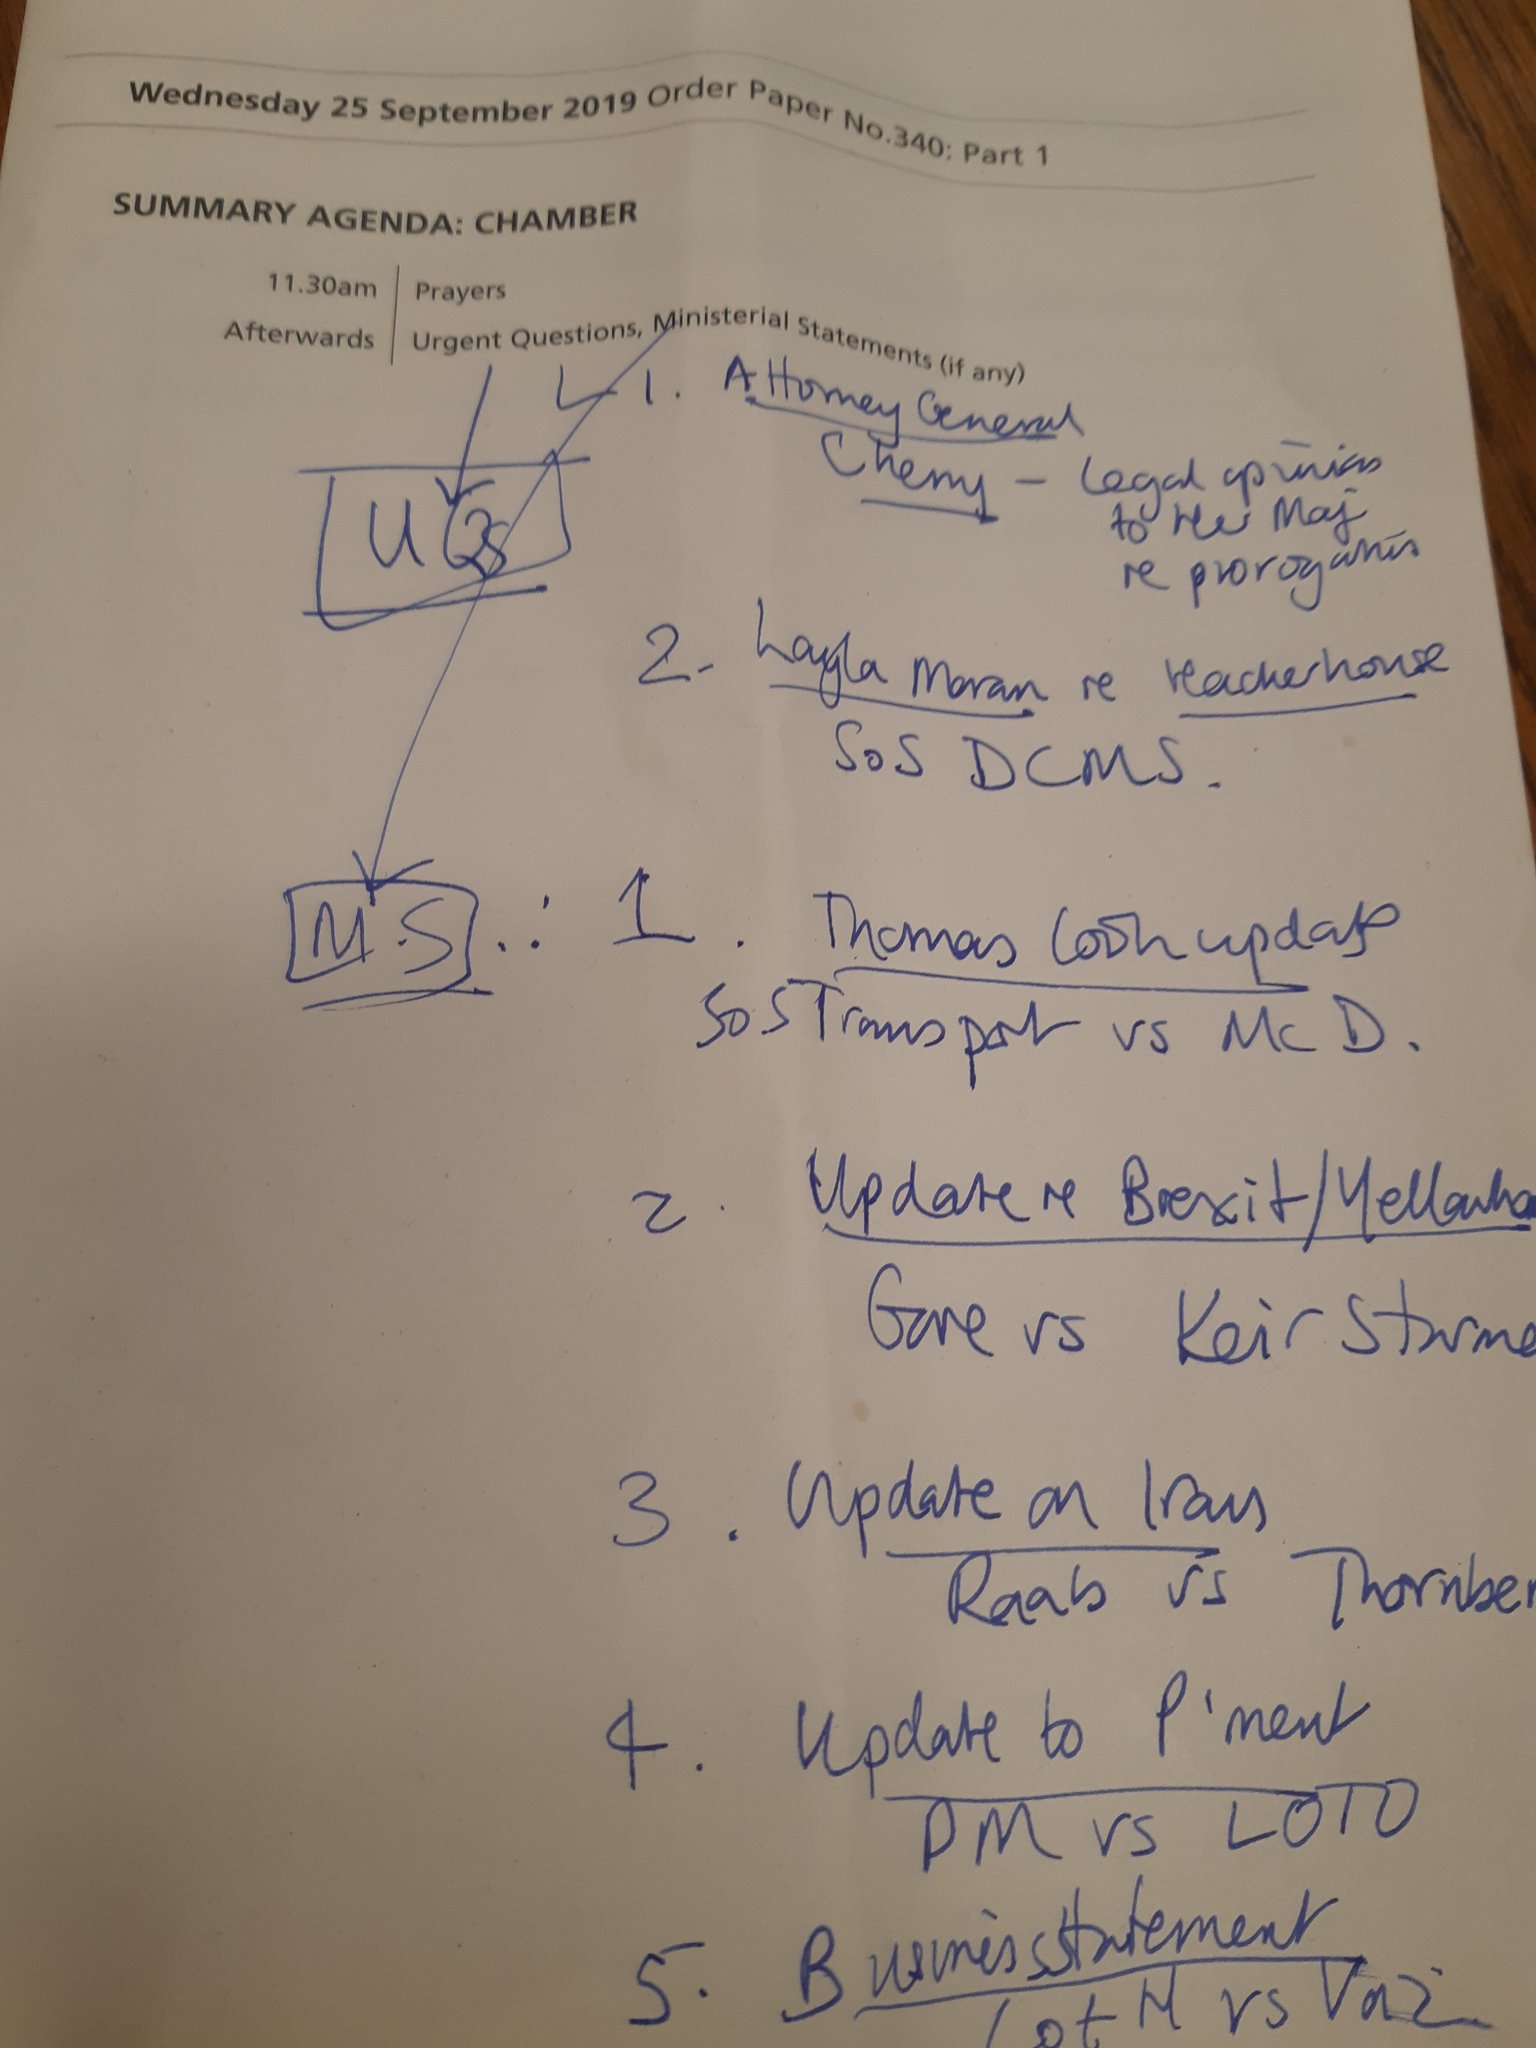 Wednesday 25 September 2019 Order Paper No.340: Part 1
SUMMARY AGENDA: CHAMBER
11.30am Prayers
Afterwards Urgent Questions, Ministerial Statements (if any)
1. Attorney General
Cherry - Legal opinion
to Her Maj
re prorogation
UQs
2. Layla Moran re Hackerhouse
SoS DCMS.
M.S. : 1. Thomas Cook update
SoS Transport vs McD.
2. Update re Brexit/Yellowha
Gove vs Keir Starme
3. Update on Iran
Raab vs Thornber
4. Update to P'ment
PM vs LOTO
5. Business Statement
LotH vs Vaz